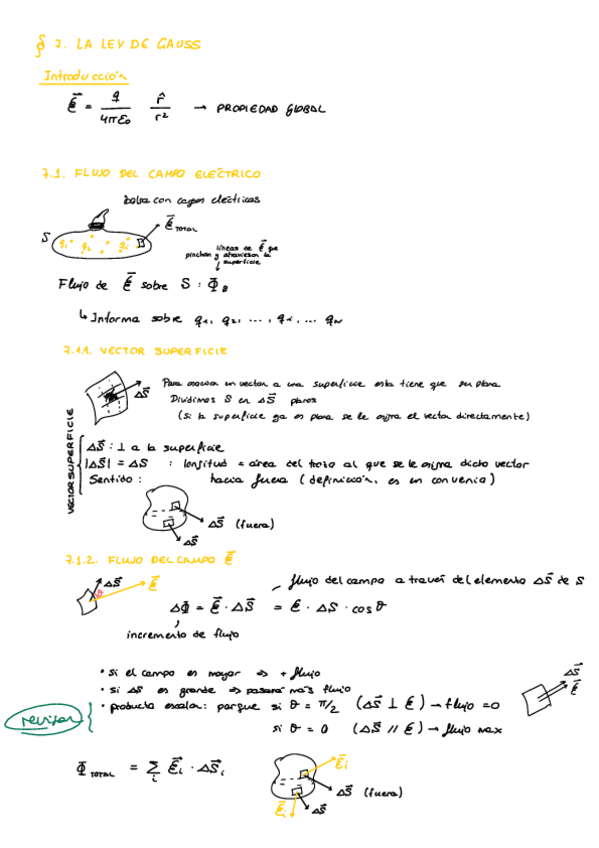 § 7. LA LEY DE GAUSS
Introducción
E⃗ = q / 4πε₀ r̂ / r² → PROPIEDAD GLOBAL
7.1. FLUJO DEL CAMPO ELÉCTRICO
bolsa con cargas eléctricas
S q₁ q₂ qᵢ E⃗ TOTAL
líneas de E⃗ que
pinchan y atraviesan la
superficie
Flujo de E⃗ sobre S : Φ
↳ Informa sobre q₁, q₂, ..., qᵢ, ... qN
7.1.1. VECTOR SUPERFICIE
Para asociar un vector a una superficie esta tiene que ser plana
ΔS⃗
Dividimos S en ΔS⃗ planos
(si la superficie ya es plana se le asigna el vector directamente)
VECTOR SUPERFICIE
ΔS⃗ : ⊥ a la superficie
|ΔS⃗| = ΔS : longitud = área del trozo al que se le asigna dicho vector
Sentido : hacia fuera (definición, es un convenio)
ΔS⃗ (fuera)
ΔS⃗
7.1.2. FLUJO DEL CAMPO E⃗
ΔS⃗ E⃗
flujo del campo a través del elemento ΔS⃗ de S
ΔΦ = E⃗ · ΔS⃗ = E · ΔS · cosθ
incremento de flujo
• si el campo es mayor ⇒ + flujo
• si ΔS es grande ⇒ pasará más flujo
• producto escalar: porque si θ = π/2 (ΔS⃗ ⊥ E) → flujo = 0
si θ = 0 (ΔS⃗ // E) → flujo max
revisar
ΔS⃗
E⃗
Φ TOTAL = Σᵢ E⃗ᵢ · ΔS⃗ᵢ
E⃗ᵢ
ΔS⃗ (fuera)
E⃗ᵢ ΔS⃗